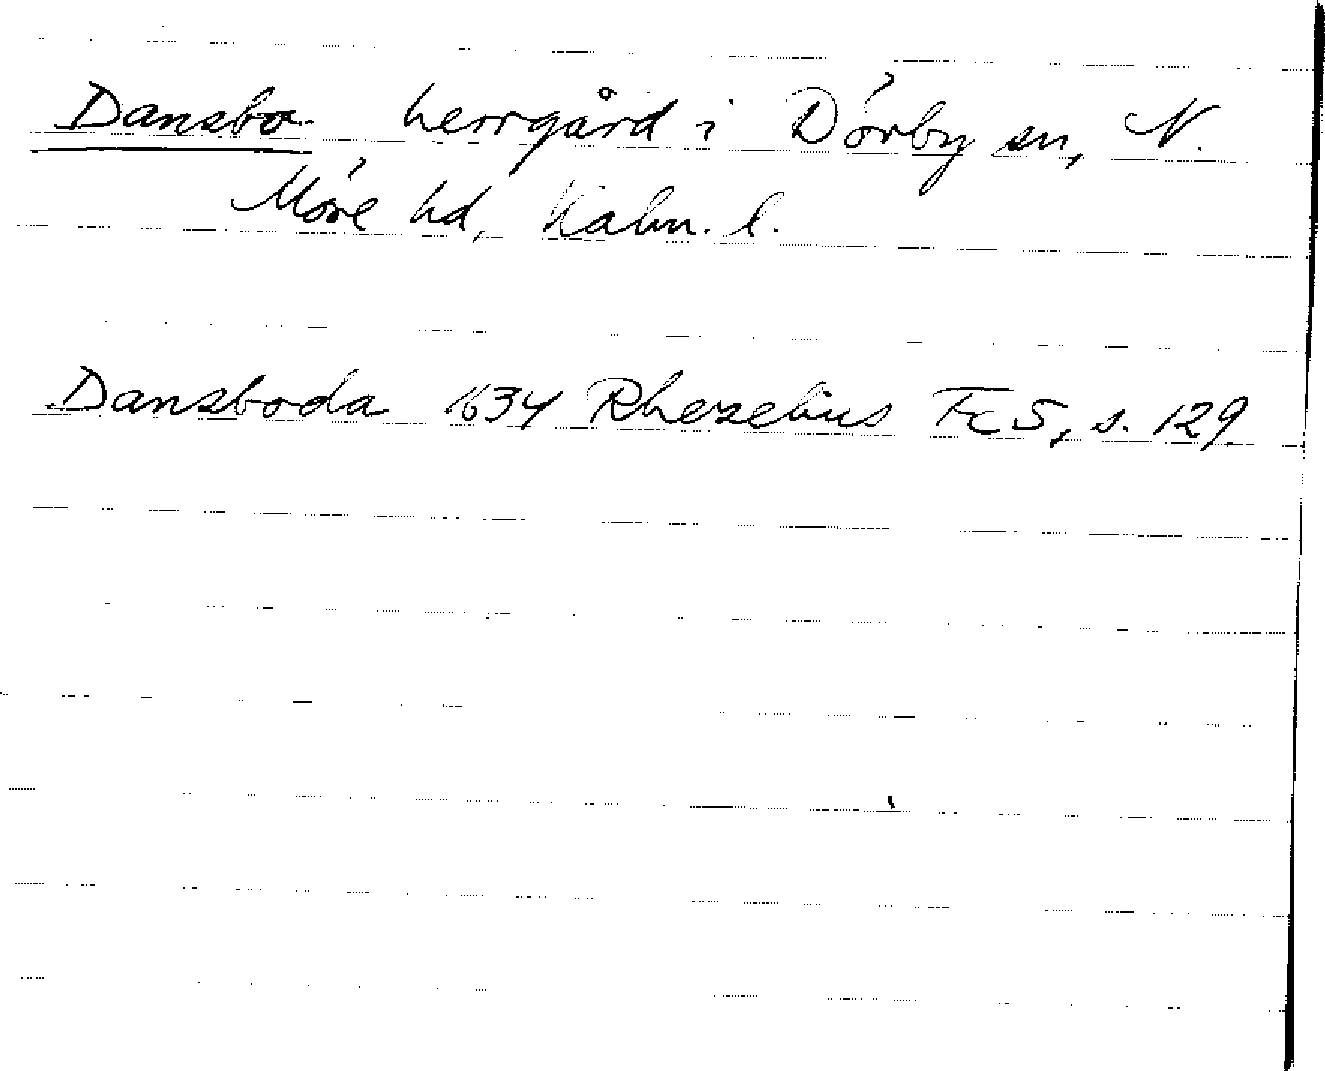 Dansbo herrgård i Dörby sn, N.
Möre hd, Kalm. l.
Dansboda 1634 Rhezelius Fc5, s. 129.